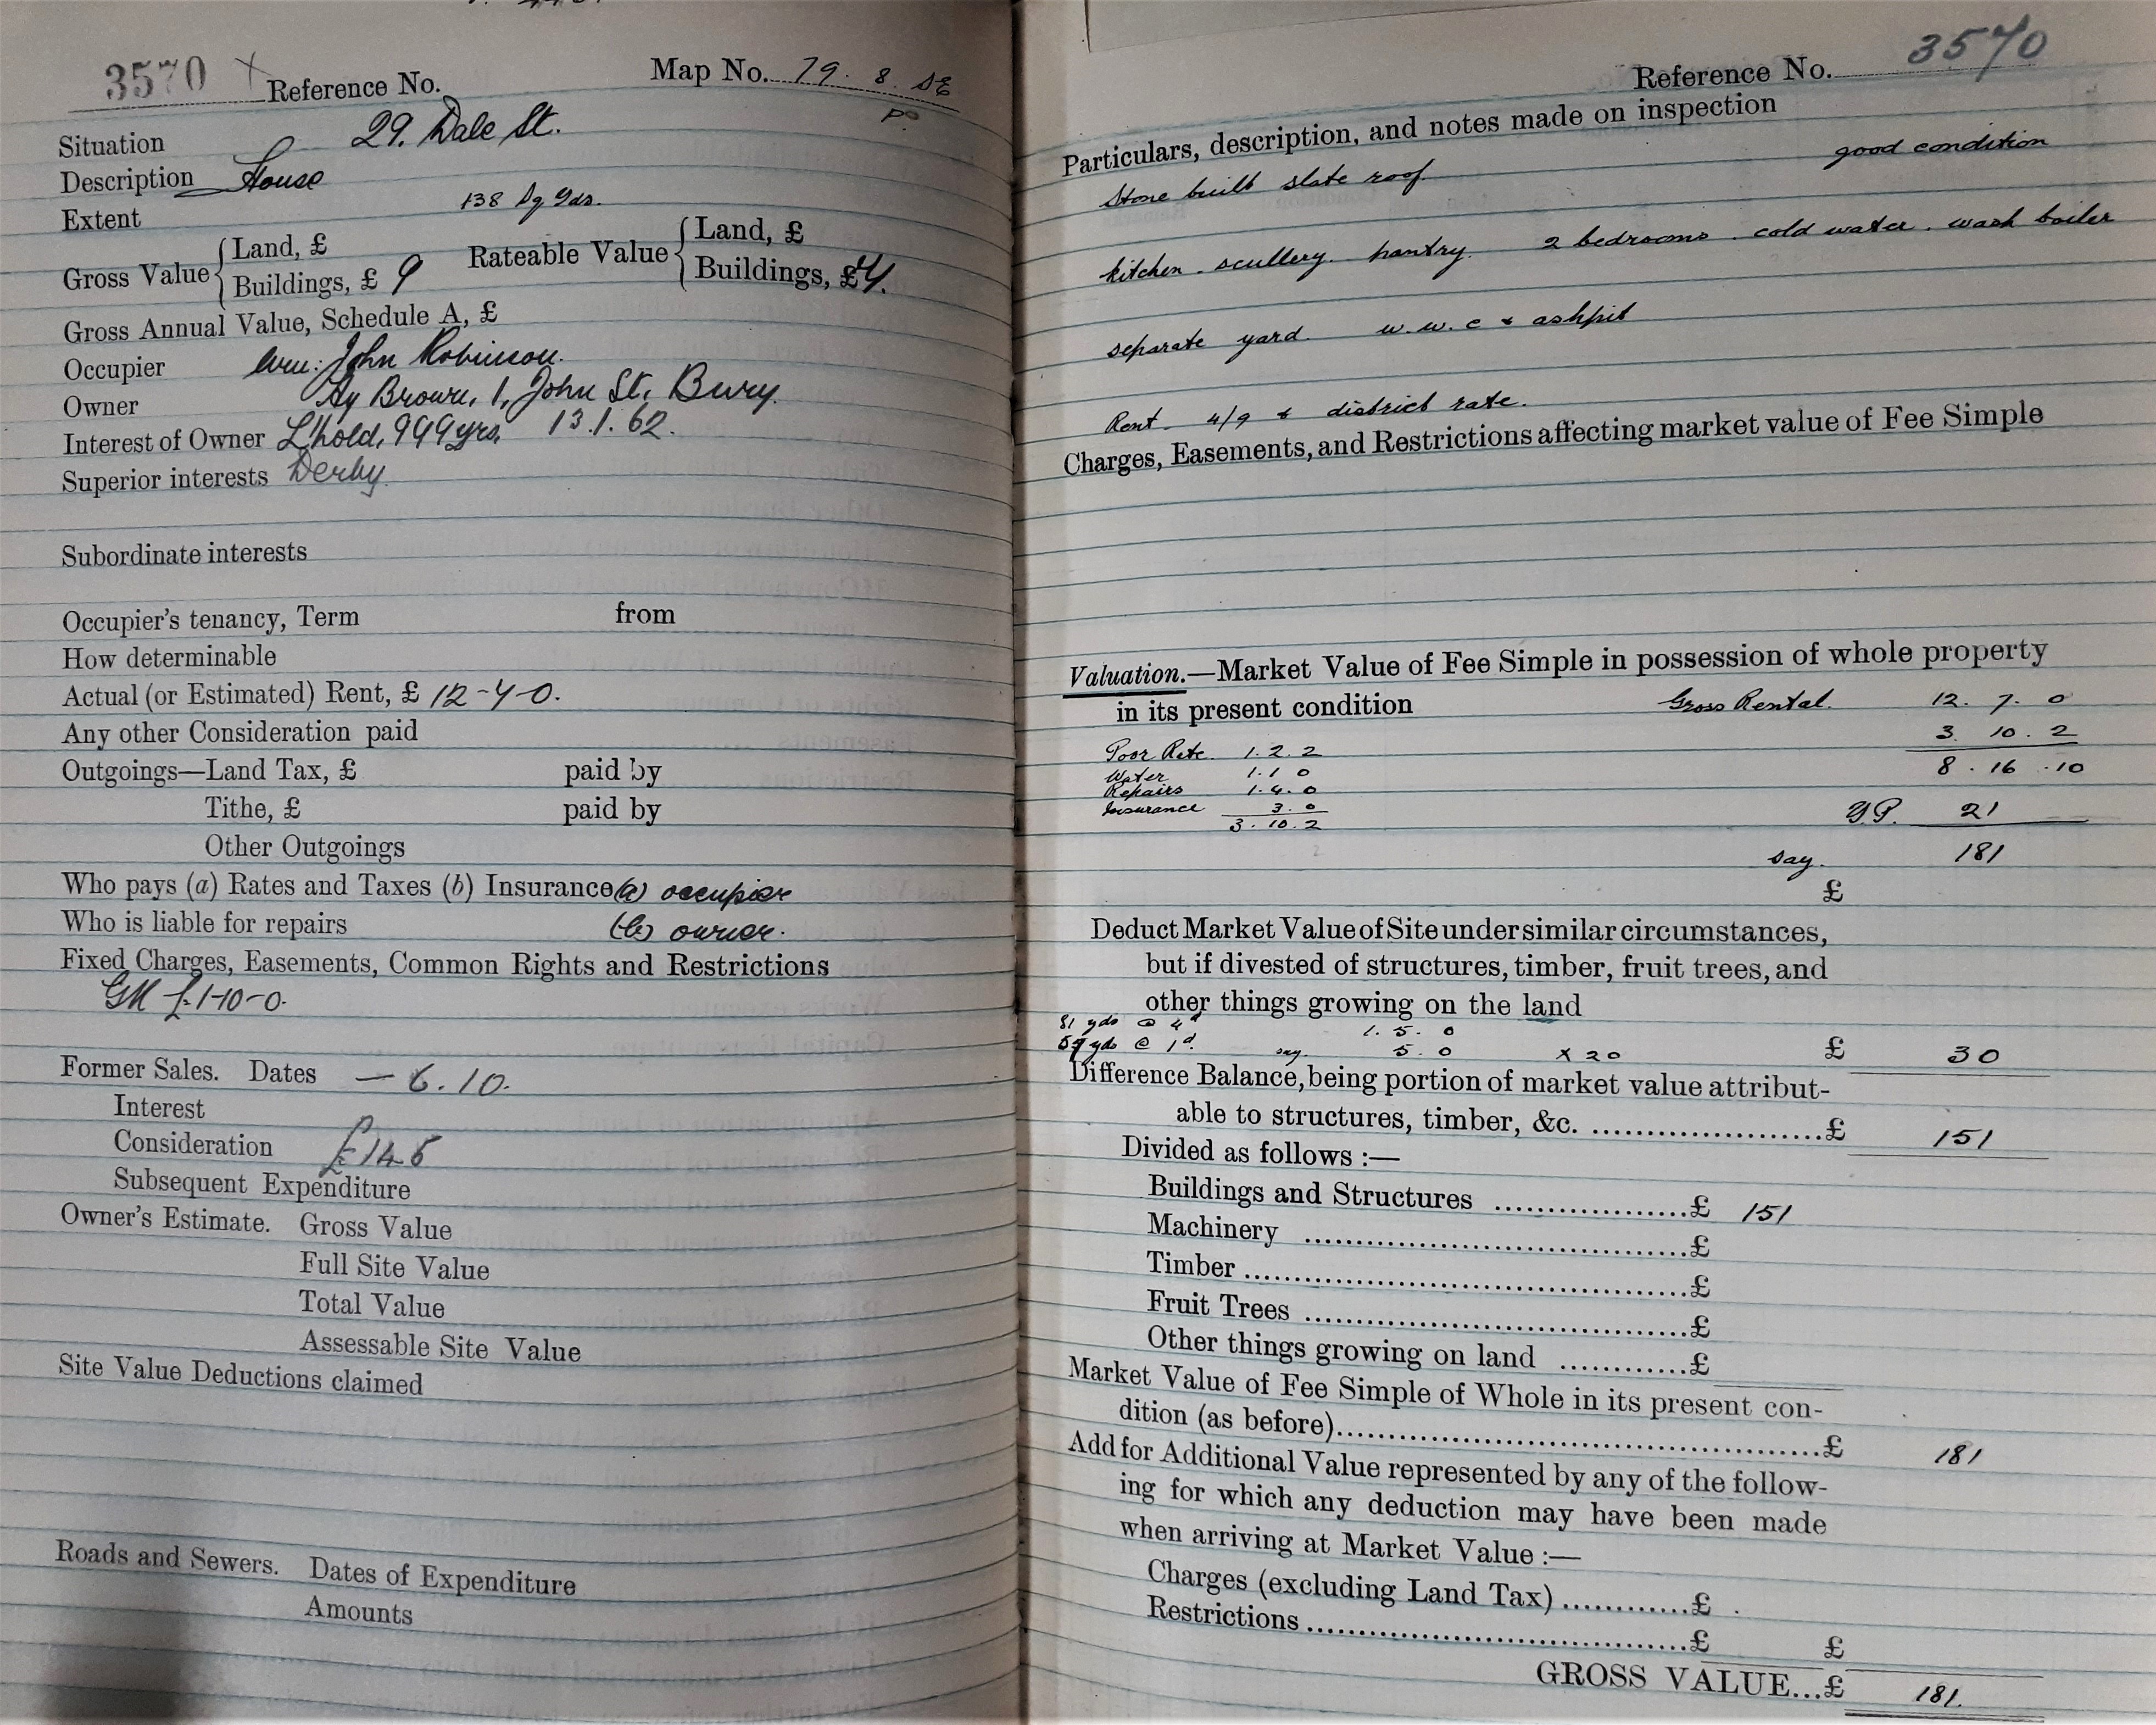 3570 Reference No. Map No. 79. 8. SE
Situation 29. Dale St.
Description House
Extent 138 Sq Yds.
Gross Value { Land, £
Buildings, £ 9
Rateable Value { Land, £
Buildings, £
Gross Annual Value, Schedule A, £
Occupier Wm: John Robinson.
Owner Hy Brown, 1, John St, Bury.
Interest of Owner L'hold, 999 yrs, 13.1.62.
Superior interests Derby
Subordinate interests
Occupier's tenancy, Term from
How determinable
Actual (or Estimated) Rent, £ 12-7-0.
Any other Consideration paid
Outgoings—Land Tax, £ paid by
Tithe, £ paid by
Other Outgoings
Who pays (a) Rates and Taxes (b) Insurance (a) occupier
Who is liable for repairs (b) owner.
Fixed Charges, Easements, Common Rights and Restrictions
GR £1-10-0.
Former Sales. Dates — 6.10.
Interest
Consideration £145
Subsequent Expenditure
Owner's Estimate. Gross Value
Full Site Value
Total Value
Assessable Site Value
Site Value Deductions claimed
Roads and Sewers. Dates of Expenditure
Amounts
Reference No. 3570
Particulars, description, and notes made on inspection
Stone built slate roof good condition
kitchen. scullery. pantry. 2 bedrooms. cold water. wash boiler
separate yard. w.w.c & ashpit
Rent. 4/9 & district rate.
Charges, Easements, and Restrictions affecting market value of Fee Simple
Valuation.—Market Value of Fee Simple in possession of whole property
in its present condition Gross Rental. 12. 7. 0
Poor Rate 1. 2. 2 3. 10. 2
Water 1. 1. 0 8. 16. 10
Repairs 1. 4. 0
Insurance 3. 0 Y.P. 21
3. 10. 2
say. 181
£
Deduct Market Value of Site under similar circumstances,
but if divested of structures, timber, fruit trees, and
other things growing on the land
81 yds @ 4d 1. 5. 0
57 yds @ 1d. say. 5. 0 x 20 £ 30
Difference Balance, being portion of market value attribut-
able to structures, timber, &c. ........................£ 151
Divided as follows :—
Buildings and Structures ....................£ 151
Machinery ........................................£
Timber .............................................£
Fruit Trees ........................................£
Other things growing on land ............£
Market Value of Fee Simple of Whole in its present con-
dition (as before)..................................................£ 181
Add for Additional Value represented by any of the follow-
ing for which any deduction may have been made
when arriving at Market Value :—
Charges (excluding Land Tax) .............£
Restrictions .......................................£ £
GROSS VALUE...£ 181.